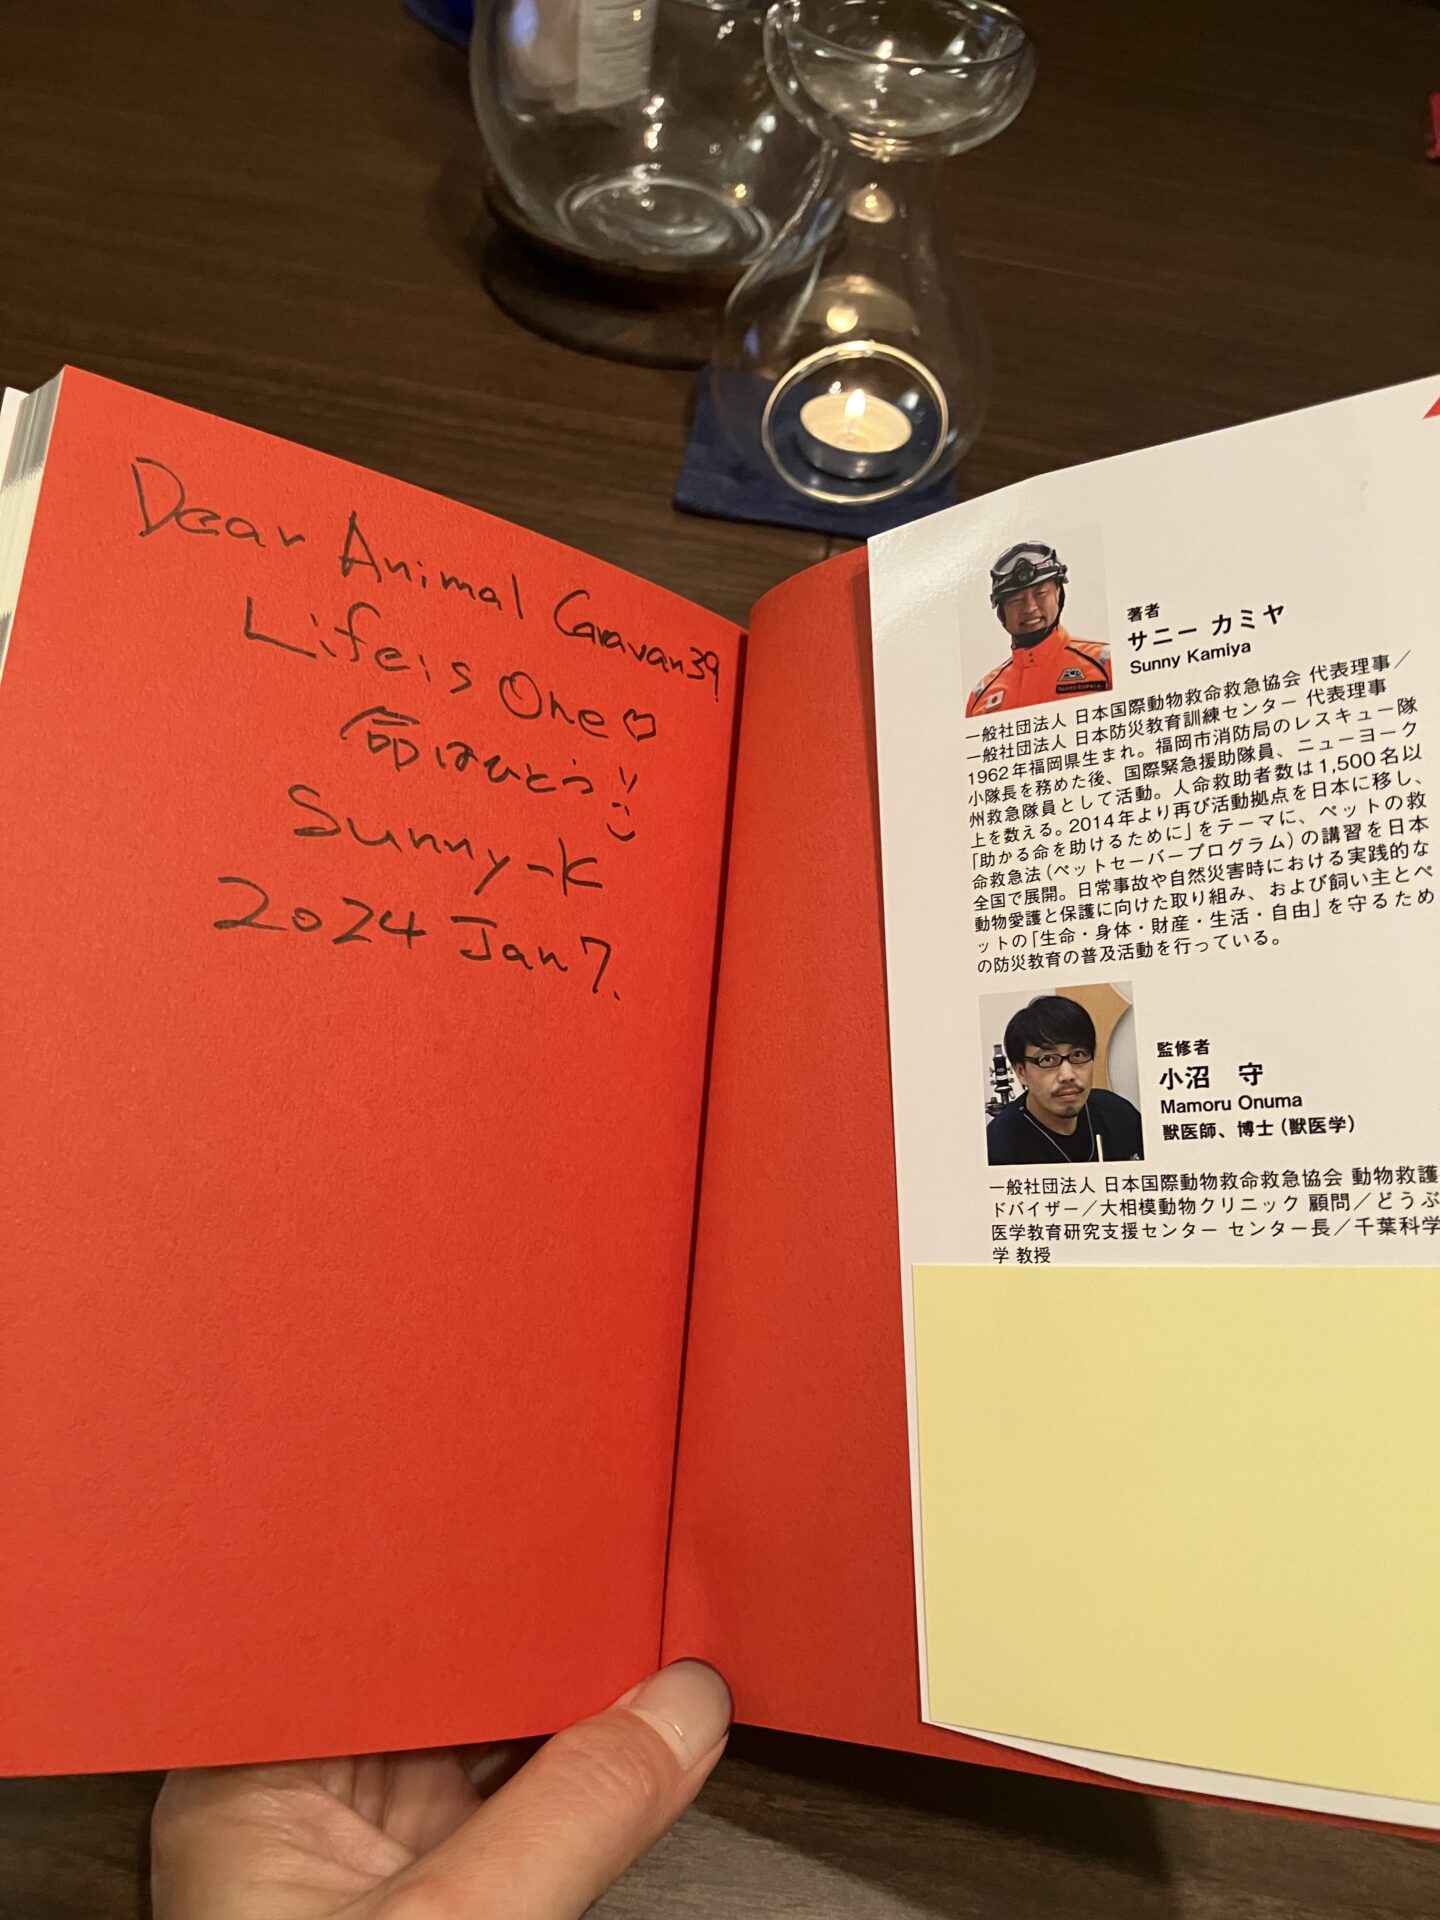 Dear Animal Caravan39!
Life is One♡
命はひとつ
Sunny-K
2024 Jan 7.
著者
サニー カミヤ
Sunny Kamiya
一般社団法人 日本国際動物救命救急協会 代表理事／
一般社団法人 日本防災教育訓練センター 代表理事
1962年福岡県生まれ。福岡市消防局のレスキュー隊
小隊長を務めた後、国際緊急援助隊員、ニューヨーク
州救急隊員として活動。人命救助者数は1,500名以
上を数える。2014年より再び活動拠点を日本に移し、
「助かる命を助けるために」をテーマに、ペットの救
命救急法（ペットセーバープログラム）の講習を日本
全国で展開。日常事故や自然災害時における実践的な
動物愛護と保護に向けた取り組み、および飼い主とペ
ットの「生命・身体・財産・生活・自由」を守るため
の防災教育の普及活動を行っている。
監修者
小沼 守
Mamoru Onuma
獣医師、博士（獣医学）
一般社団法人 日本国際動物救命救急協会 動物救護
ドバイザー／大相模動物クリニック 顧問／どうぶ
医学教育研究支援センター センター長／千葉科学
学 教授